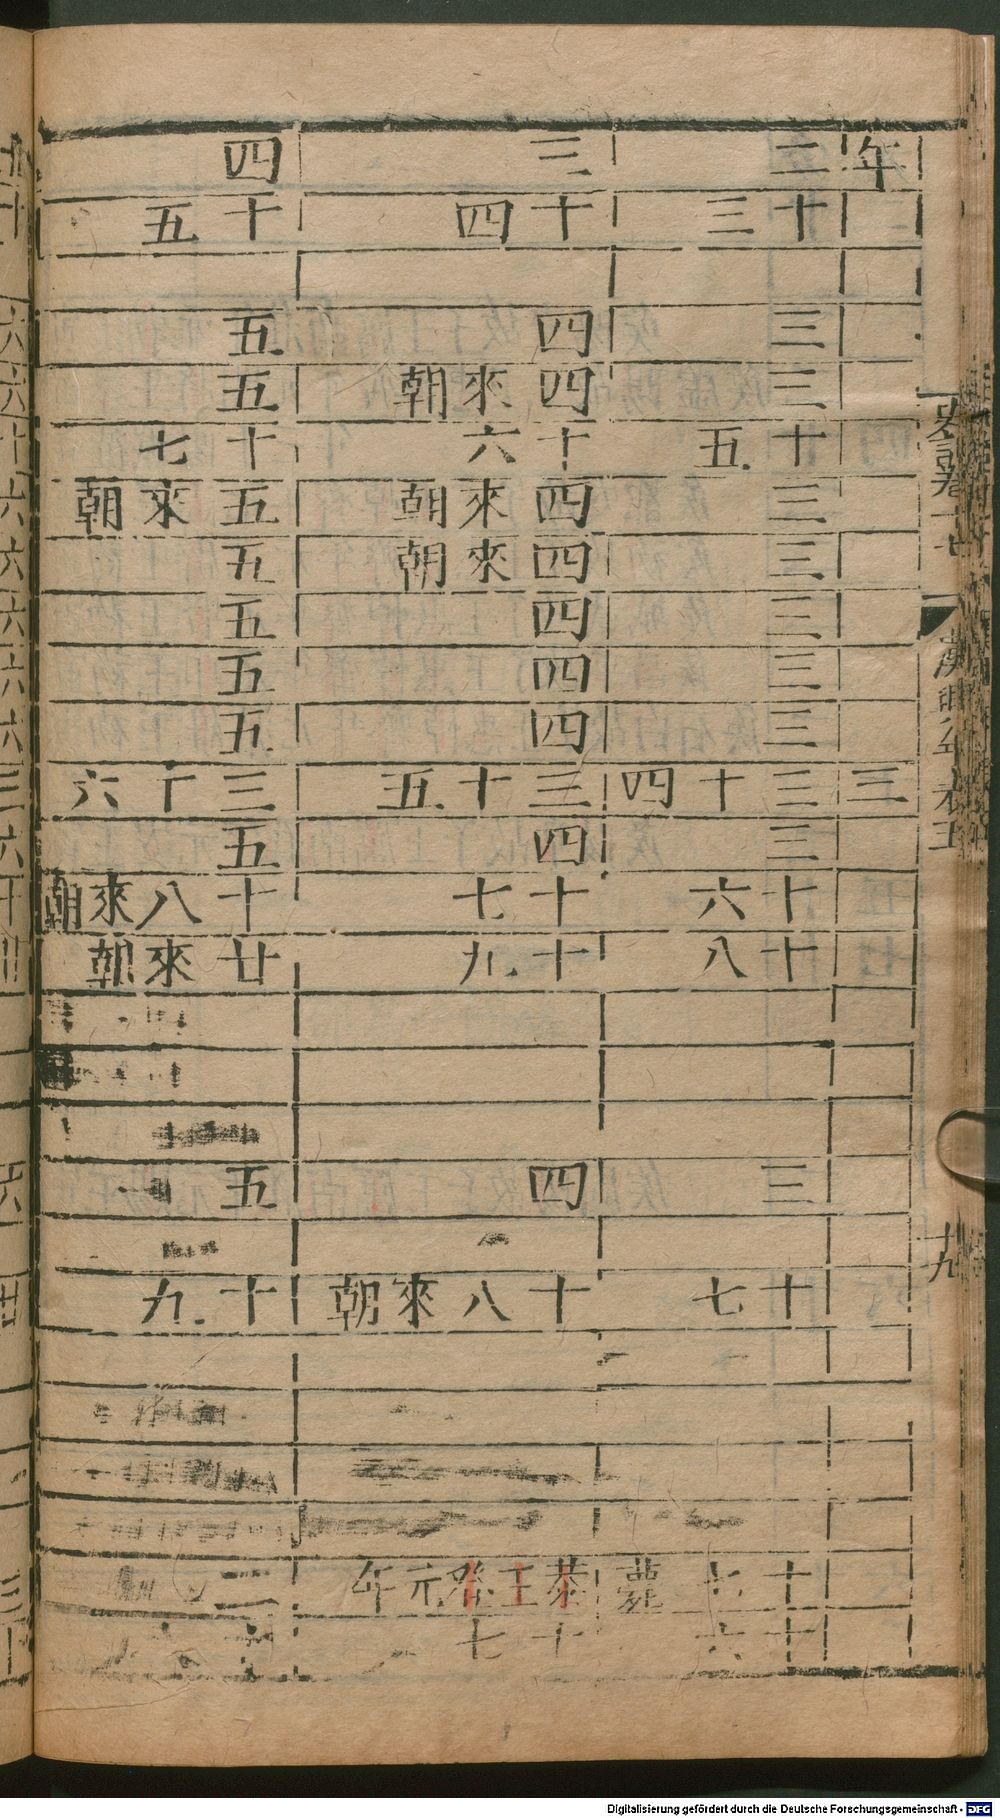 年
三
二
十三
三
三
十五
三
三
三
三
三
三十四
三
十六
十八
三
十七
十七薨
十六
三
十四
四
四來朝
十六
四來朝
四來朝
四
四
四
三十五
四
十七
十九
四
十八來朝
恭王登元年
十七
四
十五
五
五
十七
五來朝
五
五
五
五
三十六
五
十八來朝
廿來朝
五
十九
二
史記卷十七
漢興年表五
十九
Digitalisierung gefördert durch die Deutsche Forschungsgemeinschaft - DFG